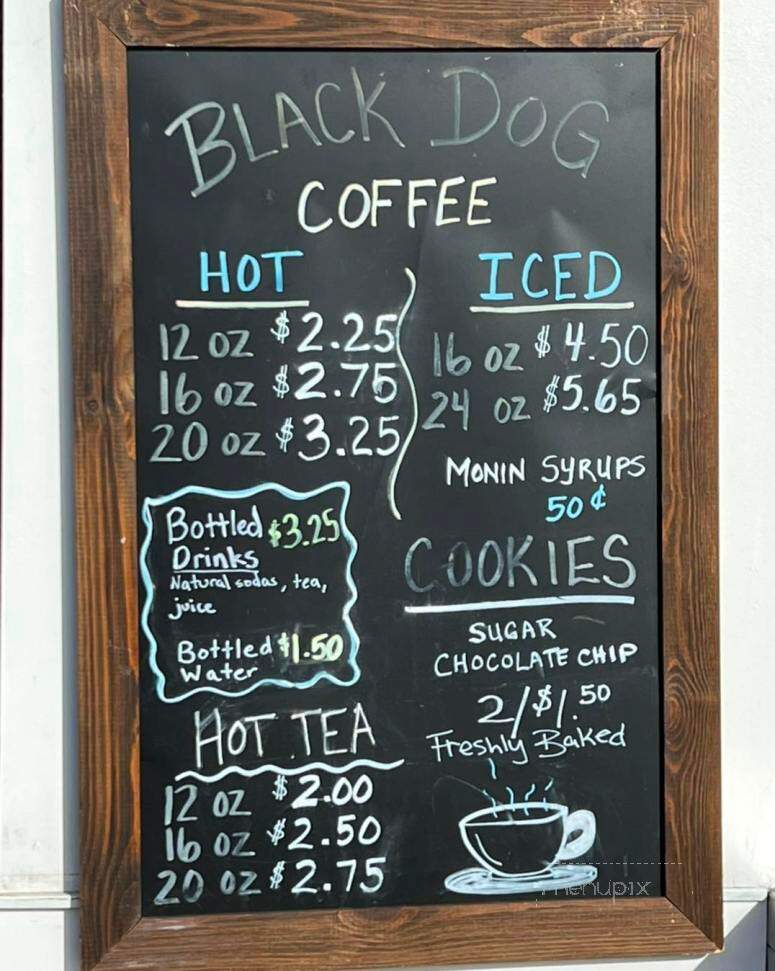 BLACK DOG
COFFEE
HOT
12 oz $2.25
16 oz $2.75
20 oz $3.25
ICED
16 oz $4.50
24 oz $5.65
MONIN SYRUPS
50¢
Bottled $3.25
Drinks
Natural sodas, tea,
juice
Bottled $1.50
Water
COOKIES
SUGAR
CHOCOLATE CHIP
2/$1.50
Freshly Baked
HOT TEA
12 oz $2.00
16 oz $2.50
20 oz $2.75
menupix